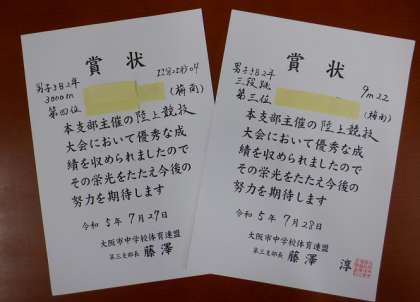 賞状
男子共通2年
3000m
12分25秒04
第四位
(梅南)
本支部主催の陸上競技
大会において優秀な成
績を収められましたので
その栄光をたたえ今後の
努力を期待します
令和 5年 7月27日
大阪市中学校体育連盟
第三支部長 藤澤
賞状
男子2年
三段跳
9m22
第三位
(梅南)
本支部主催の陸上競技
大会において優秀な成
績を収められましたので
その栄光をたたえ今後の
努力を期待します
令和 5年 7月28日
大阪市中学校体育連盟
第三支部長 藤澤 淳